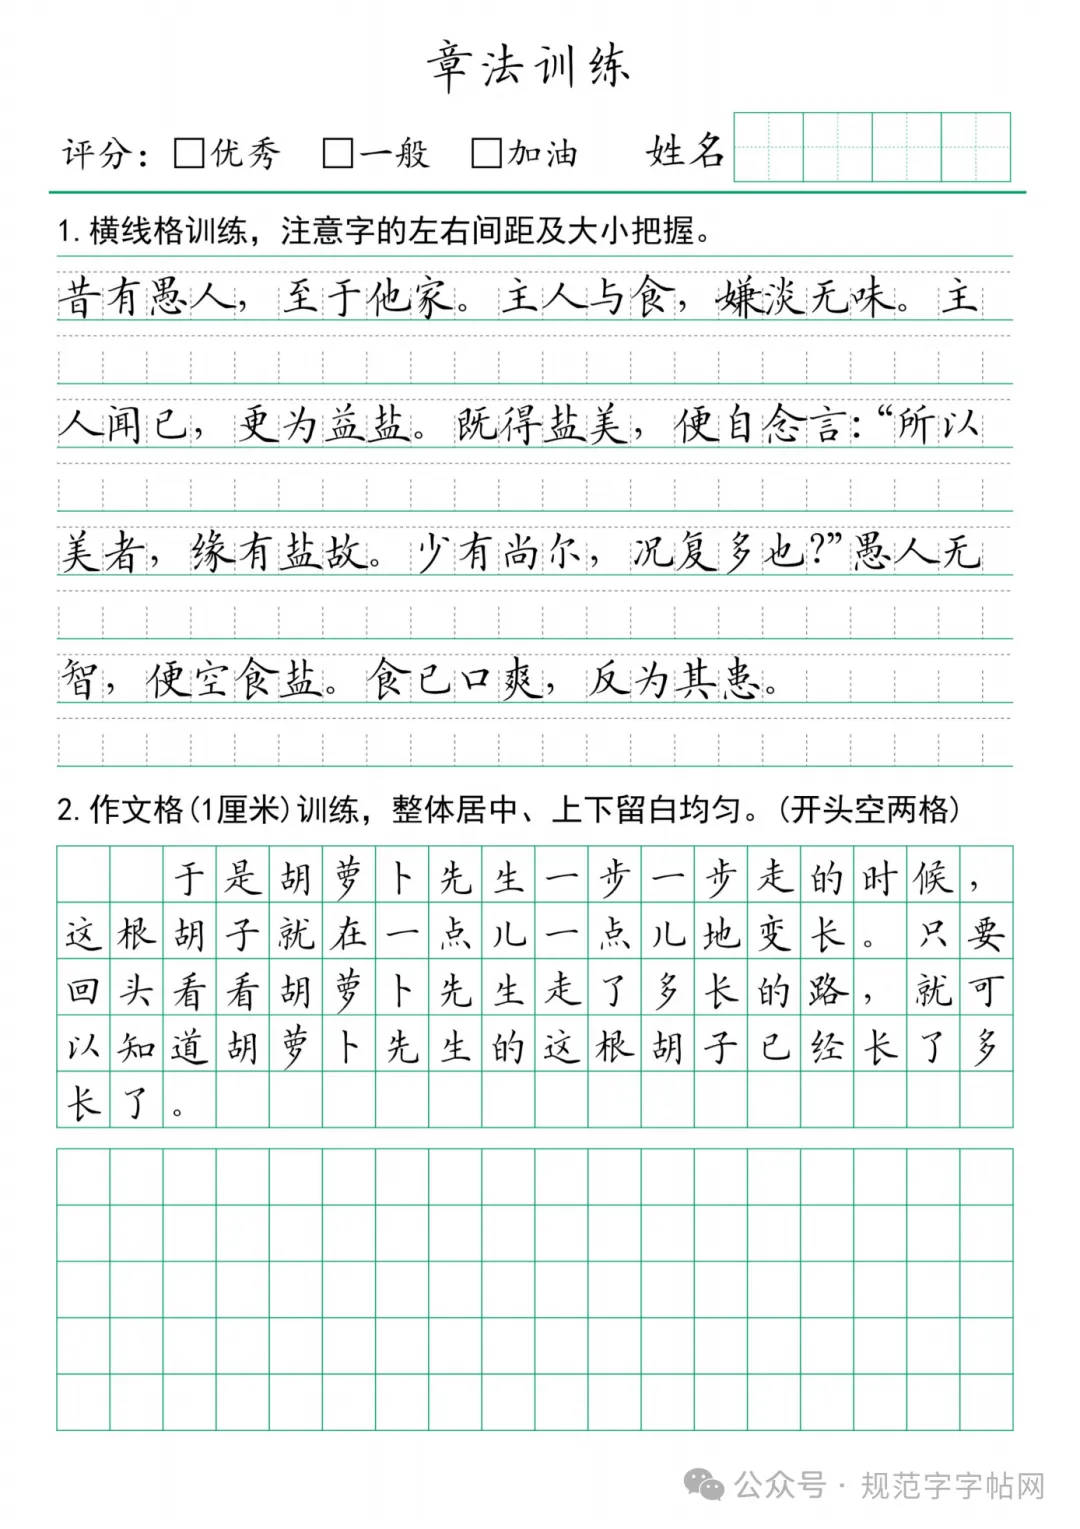 章法训练
评分：□优秀 □一般 □加油 姓名
1.横线格训练，注意字的左右间距及大小把握。
昔有愚人，至于他家。主人与食，嫌淡无味。主
人闻已，更为益盐。既得盐美，便自念言：“所以
美者，缘有盐故。少有尚尔，况复多也?”愚人无
智，便空食盐。食已口爽，反为其患。
2.作文格(1厘米)训练，整体居中、上下留白均匀。(开头空两格)
于是胡萝卜先生一步一步走的时候，
这根胡子就在一点儿一点儿地变长。只要
回头看看胡萝卜先生走了多长的路，就可
以知道胡萝卜先生的这根胡子已经长了多
长了。
公众号·规范字字帖网